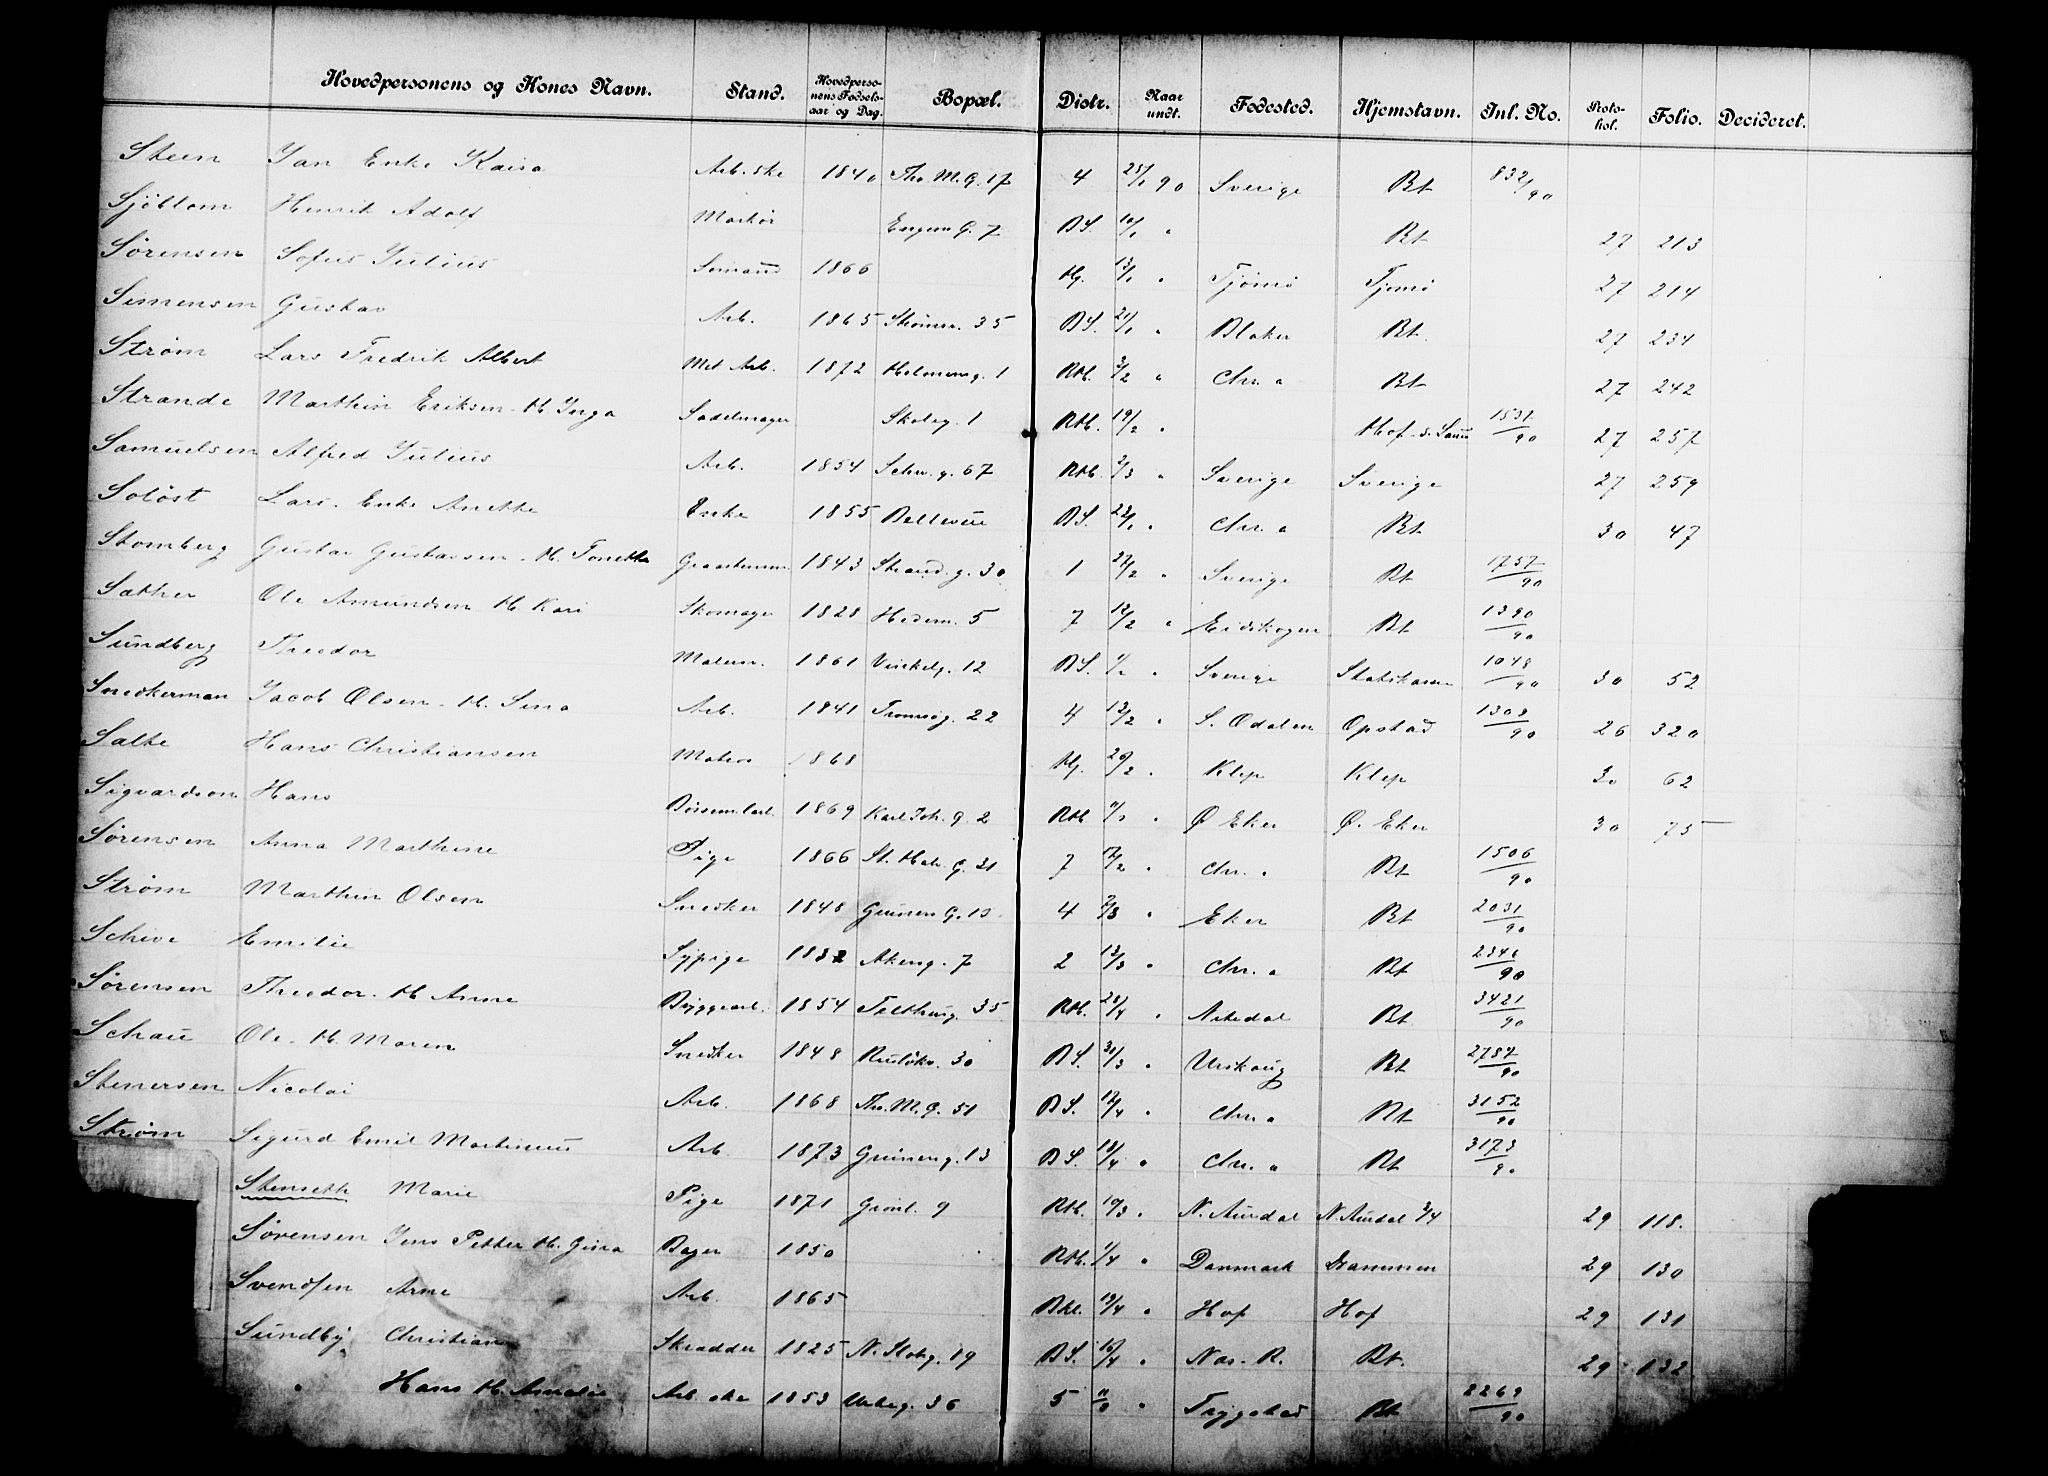 Hovedpersonens og Kones Navn. Stand. Hovedpersonens Fødselsaar og Dag. Bopæl. Distr. Naar undt. Fødested. Hjemstavn. Inl. No. Protokol. Folio. Decideret.
Steen Jan Enke Kaisa Arb. ske 1840 Th. M. G. 17 4 25/1 90 Sverige Bt 832/90
Sjöblom Henrik Adolf Markør G. 7 BS. 10/1 " Bt 27 213
Sørensen Sofus Julius Sømand 1866 Hj. 13/1 " Tjømø Tjømø 27 214
Simensen Gustav Arb. 1865 Strømsv. 35 BS. 21/1 " Blaker Bt. 27 234
Strøm Lars Fredrik Albert Met Arb. 1872 Holmensg. 1 RH. 3/2 " Chr. a Bt 27 242
Strande Marthin Eriksen H. Inga Sadelmager Skoleg. 1 RH. 19/2 " Hof s. 1537/90 27 257
Samuelsen Alfred Julius Arb. 1854 Schw. g. 67 RH. 2/3 " Sverige Sverige 27 259
Soløst Lars. Enke Anette Enke 1855 Bellevue BS. 23/1 " Chr. a Bt 30 47
Stomberg Gustav Gustavsen H. Tonette 1843 Strand. g. 30 1 27/2 " Sverige Bt 1757/90
Sæther Ole Amundsen H. Kari Skomager 1828 Hedem. 5 7 12/2 " Eidskogen Bt 1390/90
Sundberg Theodor Malersv. 1861 Vinkelg. 12 BS. 1/2 " Sverige Statskassen 1048/90 30 52
Snedkerman Jacob Olsen H. Sina Arb. 1841 Tromsøg. 22 4 12/2 " S. Odalen Opstad 1308/90 26 320
Salte Hans Christiansen Matros 1868 Hj. 20/2 " Klep Klep 30 62
Sigvardson Hans 1869 Karl Joh. G. 2 RH " Ø Eker Ø. Eker 30 75
Sørensen Anna Marthine Pige 1866 St. Hal. G. 31 7 /2 " Chr. a Bt 1506/90
Strøm Marthin Olsen Snedker 1848 G. 4 /3 " Eker Bt 2031/90
Schive Emilie Sypige 1832 Akersg. 7 2 13/3 " Chr. a Bt 2346/90
Sørensen Theodor. H. Anne Bryggearb. 1854 Telthusg. 35 RH. 28/4 " Nitedal Bt. 3421/90
Schau Ole. H. Maren Snedker 1848 30 BS. 31/3 " Urskoug Bt 2787/90
Stenersen Nicolai Arb. 1868 Th. M. G. 51 BS. 17/4 " Chr. a Bt 3152/90
Strøm Sigurd Emil Martinius Arb. 1873 Grünerg. 13 BS. 18/4 " Chr. a Bt 3173/90
Stenseth Marie Pige 1871 Grønl. 9 RH. 10/3 " N. Aurdal N. Aurdal 3/4 29 118.
Sørensen Jens Petter H. Gina Bager 1850 RH. 1/4 " Danmark Drammen 29 130
Svendsen Arne Arb. 1865 19/4 " Hof Hof 29 131
Sundby Christian Skrædder 1825 N. Slotsg. 19 BS. 16/4 " Næs. R. Bt. 29 132
" Hans H. Amalie Arb ske 1853 Urteg. 36 5 " Trygstad Bt 2269/90